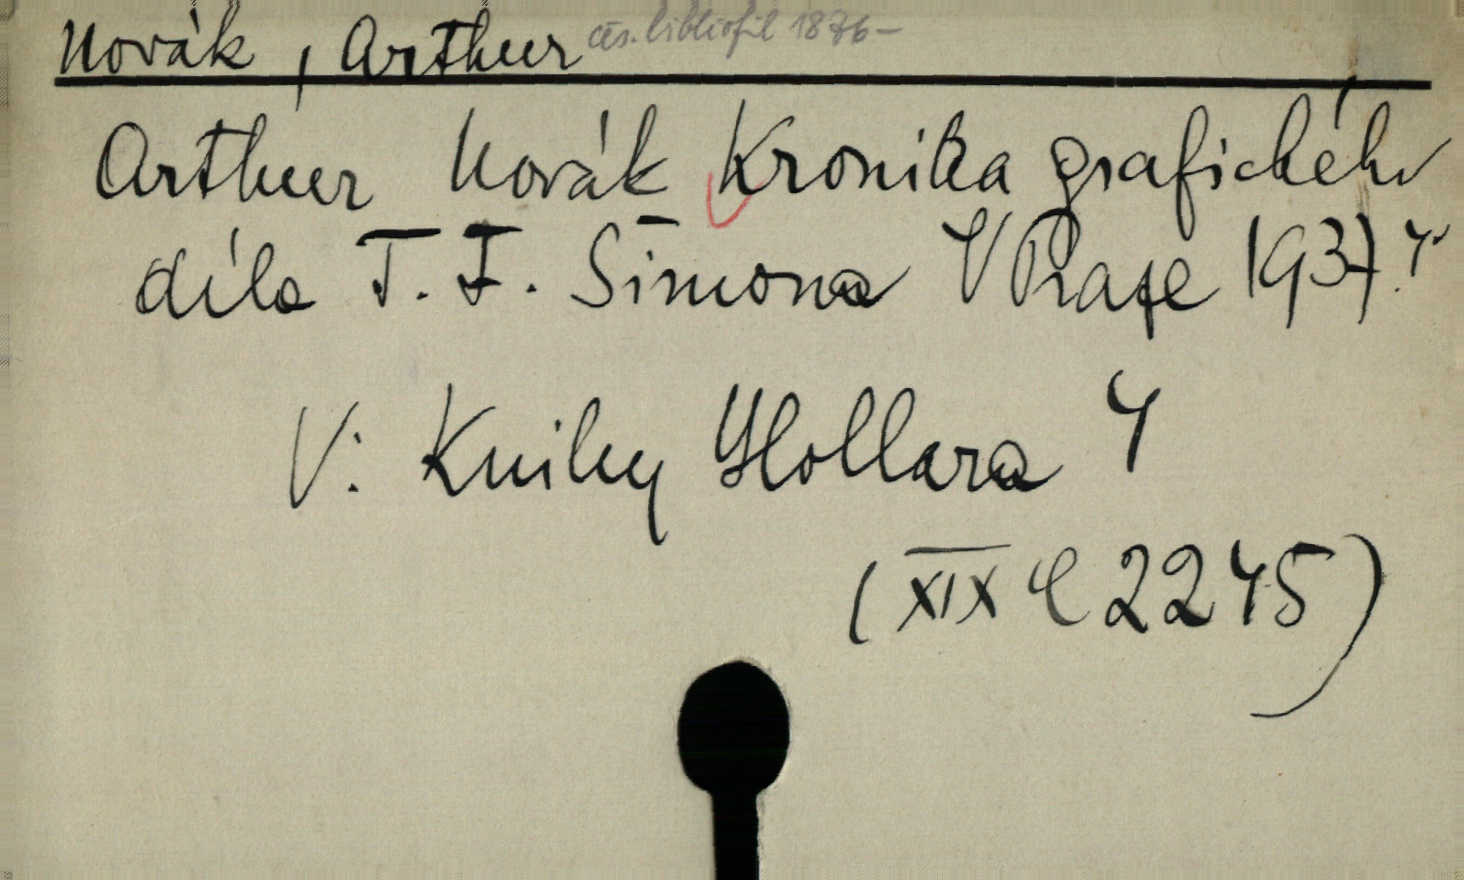 Novák, Arthur čes. bibliofil 1876-
Arthur Novák Kronika grafického
díla T. F. Šimona V Praze 1937. 4°
V: Knihy Hollara 4
(XIX C 2245)